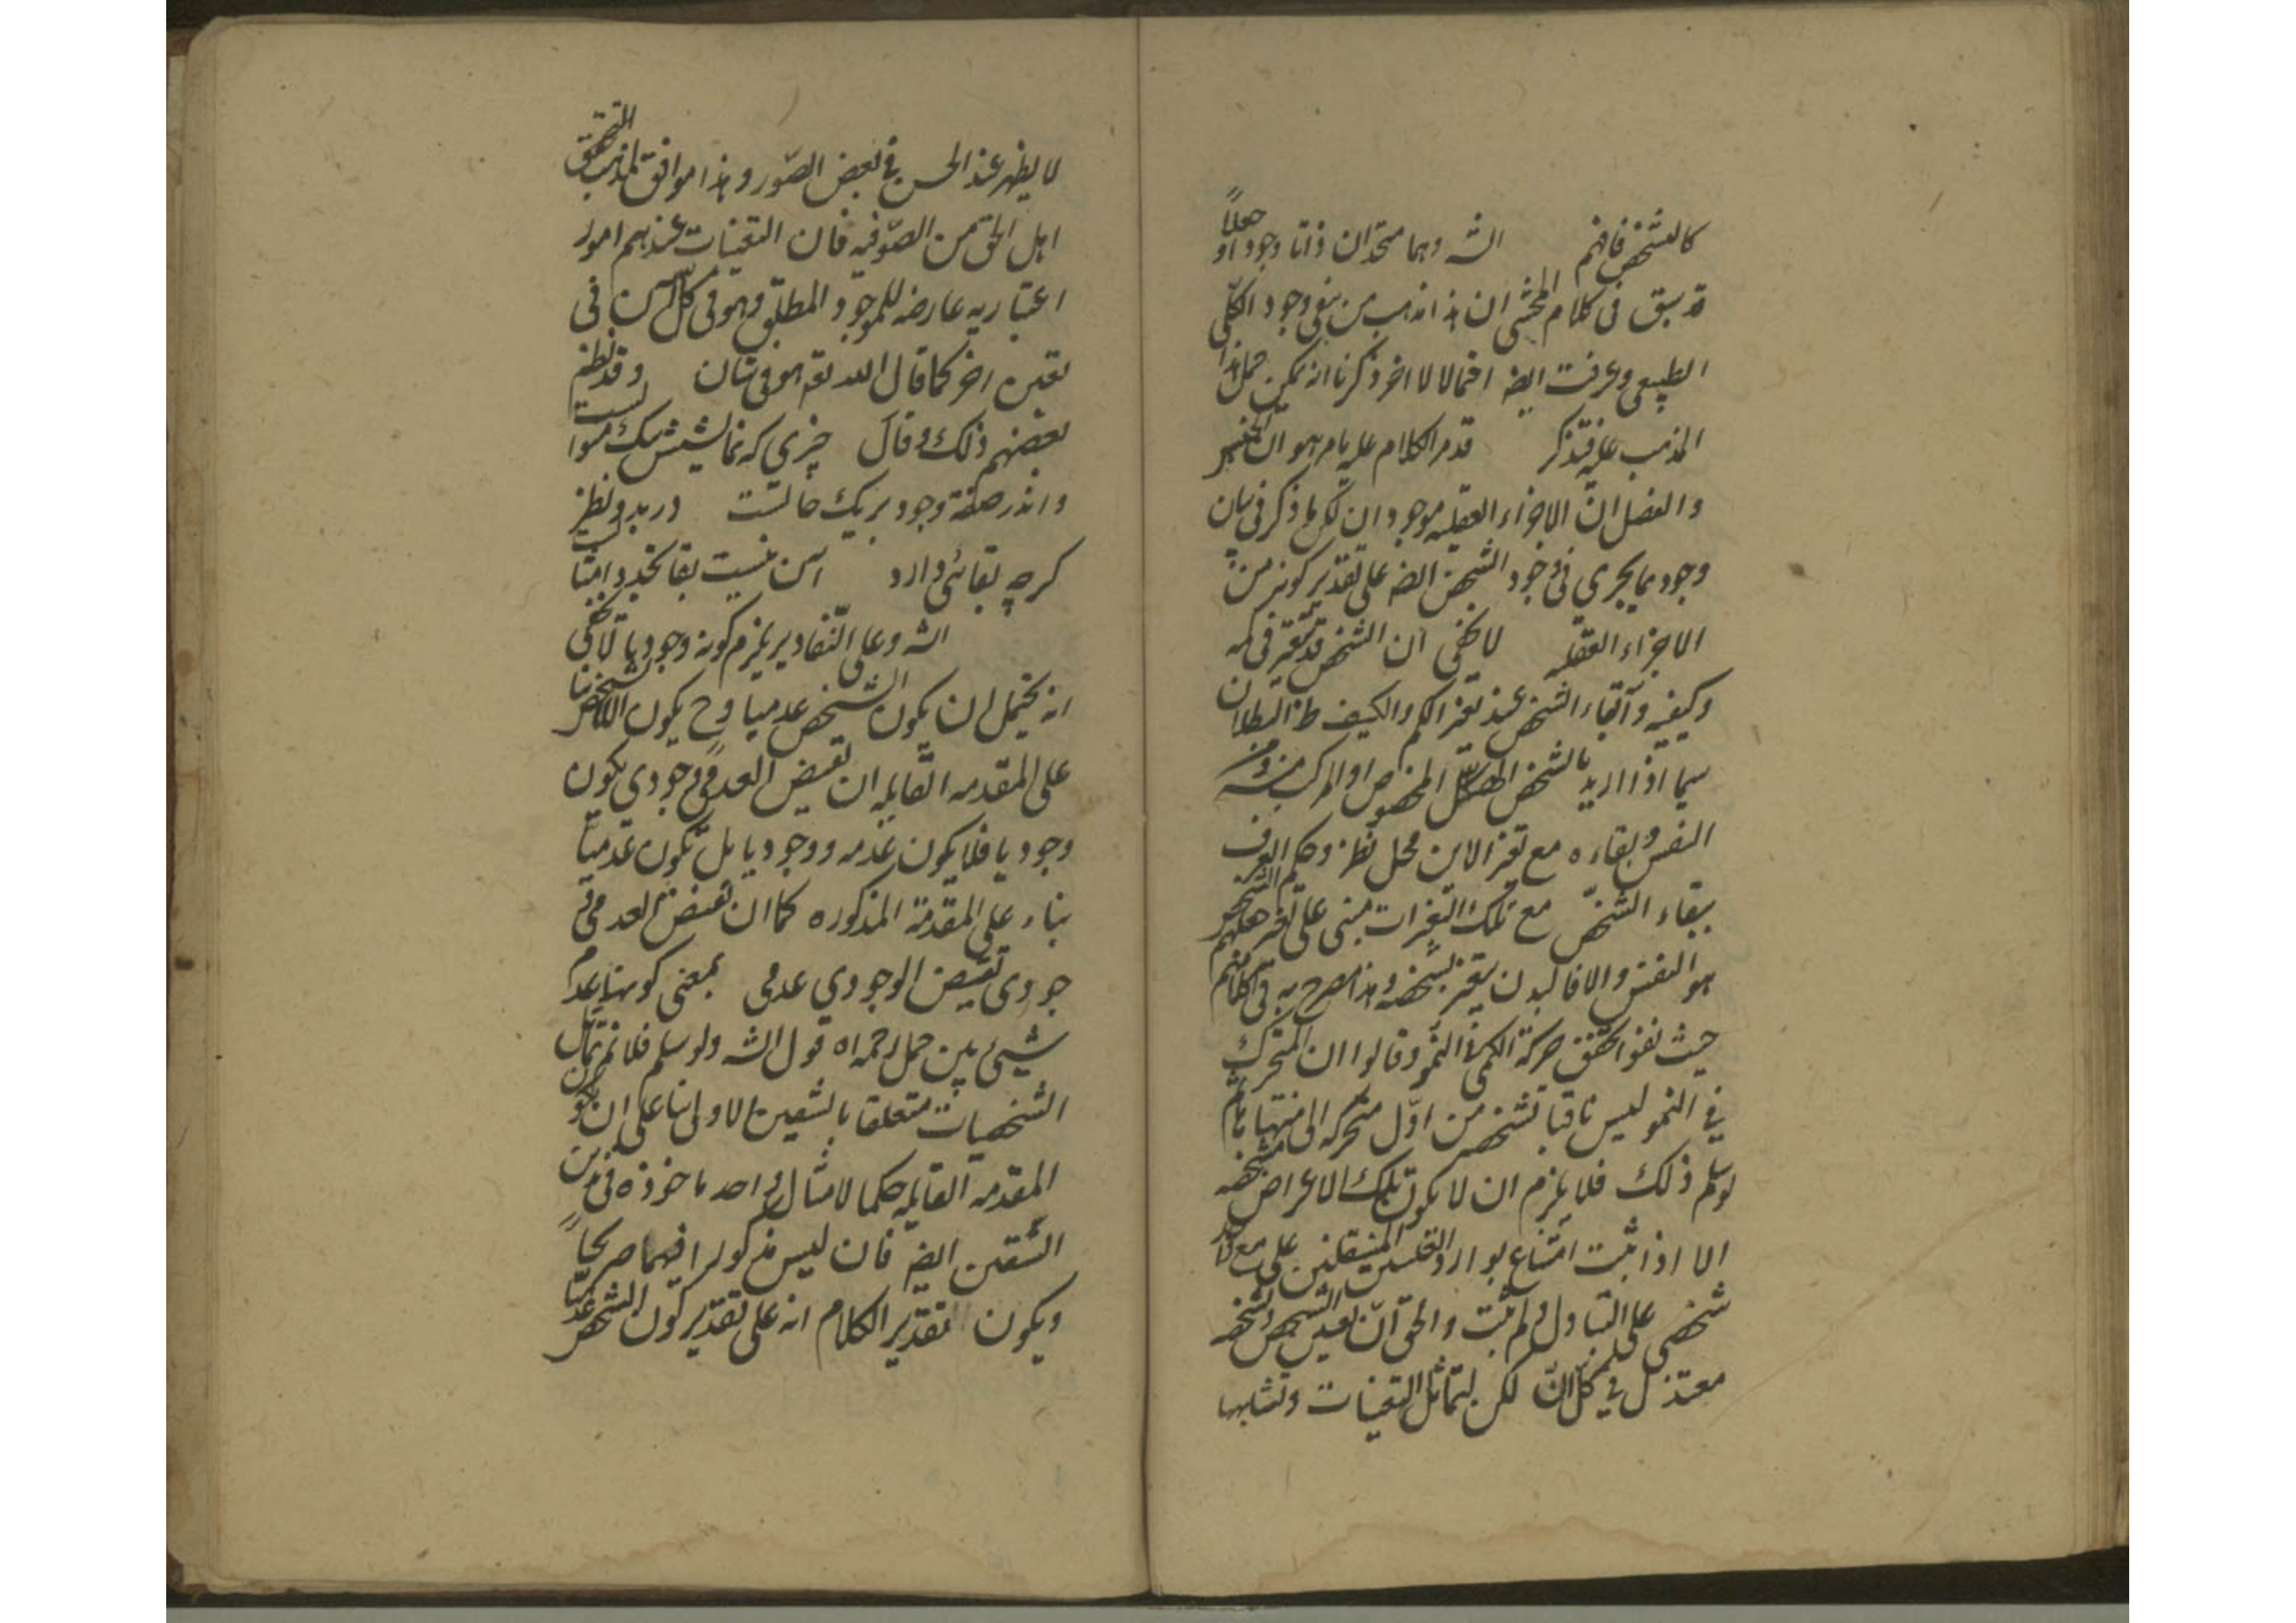 كالتشخص فافهم الشه وهما متحدان ذاتا وجودا او جعلاً
قد سبق فى كلام المحشى ان هذا مذهب من ينفى وجود الكلى
الطبيعى وعرفت ايضا احتمالا لا اخر ذكرنا انه يمكن حمل هذا
المذهب عليه فتذكر قد مر الكلام عليه بامر هو ان الجنس
والفصل ان الاجزاء العقليه موجودان لكن ما ذكر فى بيان
وجودهما يجرى فى وجود الشخص ايضا على تقدير كونه من
الاجزاء العقليه لا يخفى ان الشخص قد يتغير فى كمه
وكيفيه وابقاء الشخص عند تغير الكم والكيف ظ البطلان
سيما اذا اريد بالشخص الهيكل المخصوص او المركب منه ومن
النفس وبقاءه مع تغير الاين محل نظر وحكم العرف
ببقاء الشخص مع تلك التغيرات مبنى على
هو النفس والا فالبدن يتغير بشخصه وهذا مصرح به فى كلامهم
حيث نفوا تحقق حركة الكمى فى النمو وقالوا ان المتحرك
فى النمو ليس باقيا بشخصه من اول متحركه الى منتهاها ثم
لو سلم ذلك فلا يلزم ان لا يكون تلك الاعراض مشخصه
الا اذا ثبت امتناع توارد العلتين المستقلتين على مع
شخصى على التبادل ولم يثبت والحق ان تعين الشخص وتشخصه
متبدل فى كل ان لكن لتماثل التعينات وتشابهها
لا يظهر عند الحس فى بعض الصور وهذا موافق لمذهب التحقيق
اهل الحق من الصوفيه فان التعينات عندهم امور
اعتباريه عارضه للموجود المطلق وهو فى كل آن فى
تعين اخر كما قال الله تعه هو فى شان وقد نظم
بعضهم ذلك وقال چيزى كه نمايشش بيك منوالست
واندر صفة وجود بر يك حالست در بدو نظر
كرچه بقائى دارد آن نيست بقا تجدد امثالست
الشه وعلى التقادير يلزم كونه وجوديا لا يخفى
انه يحتمل ان يكون الشخص عدميا وح يكون اللاتشخص بنا
على المقدمه القائله ان نقيض العدمى وجودى يكون
وجوديا فلا يكون عدمه ووجوديا بل يكون عدمياً
بناء على المقدمة المذكوره كما ان نقيض العدمى و
جودى نقيض الوجودى عدمى بمعنى كونها عدم
شيئ بين حمل رحمه اه قول الشه ولو سلم فلا نم تماثل
الشخصيات متعلقا بالشقين الاولى بنا على ان يكون
المقدمه القائله حكما لامثال واحد ماخوذه فى ذين
الشقين ايضا فان ليس مذكورا فيهما صريحاً
ويكون تقدير الكلام انه على تقدير كون الشخص عدمياً